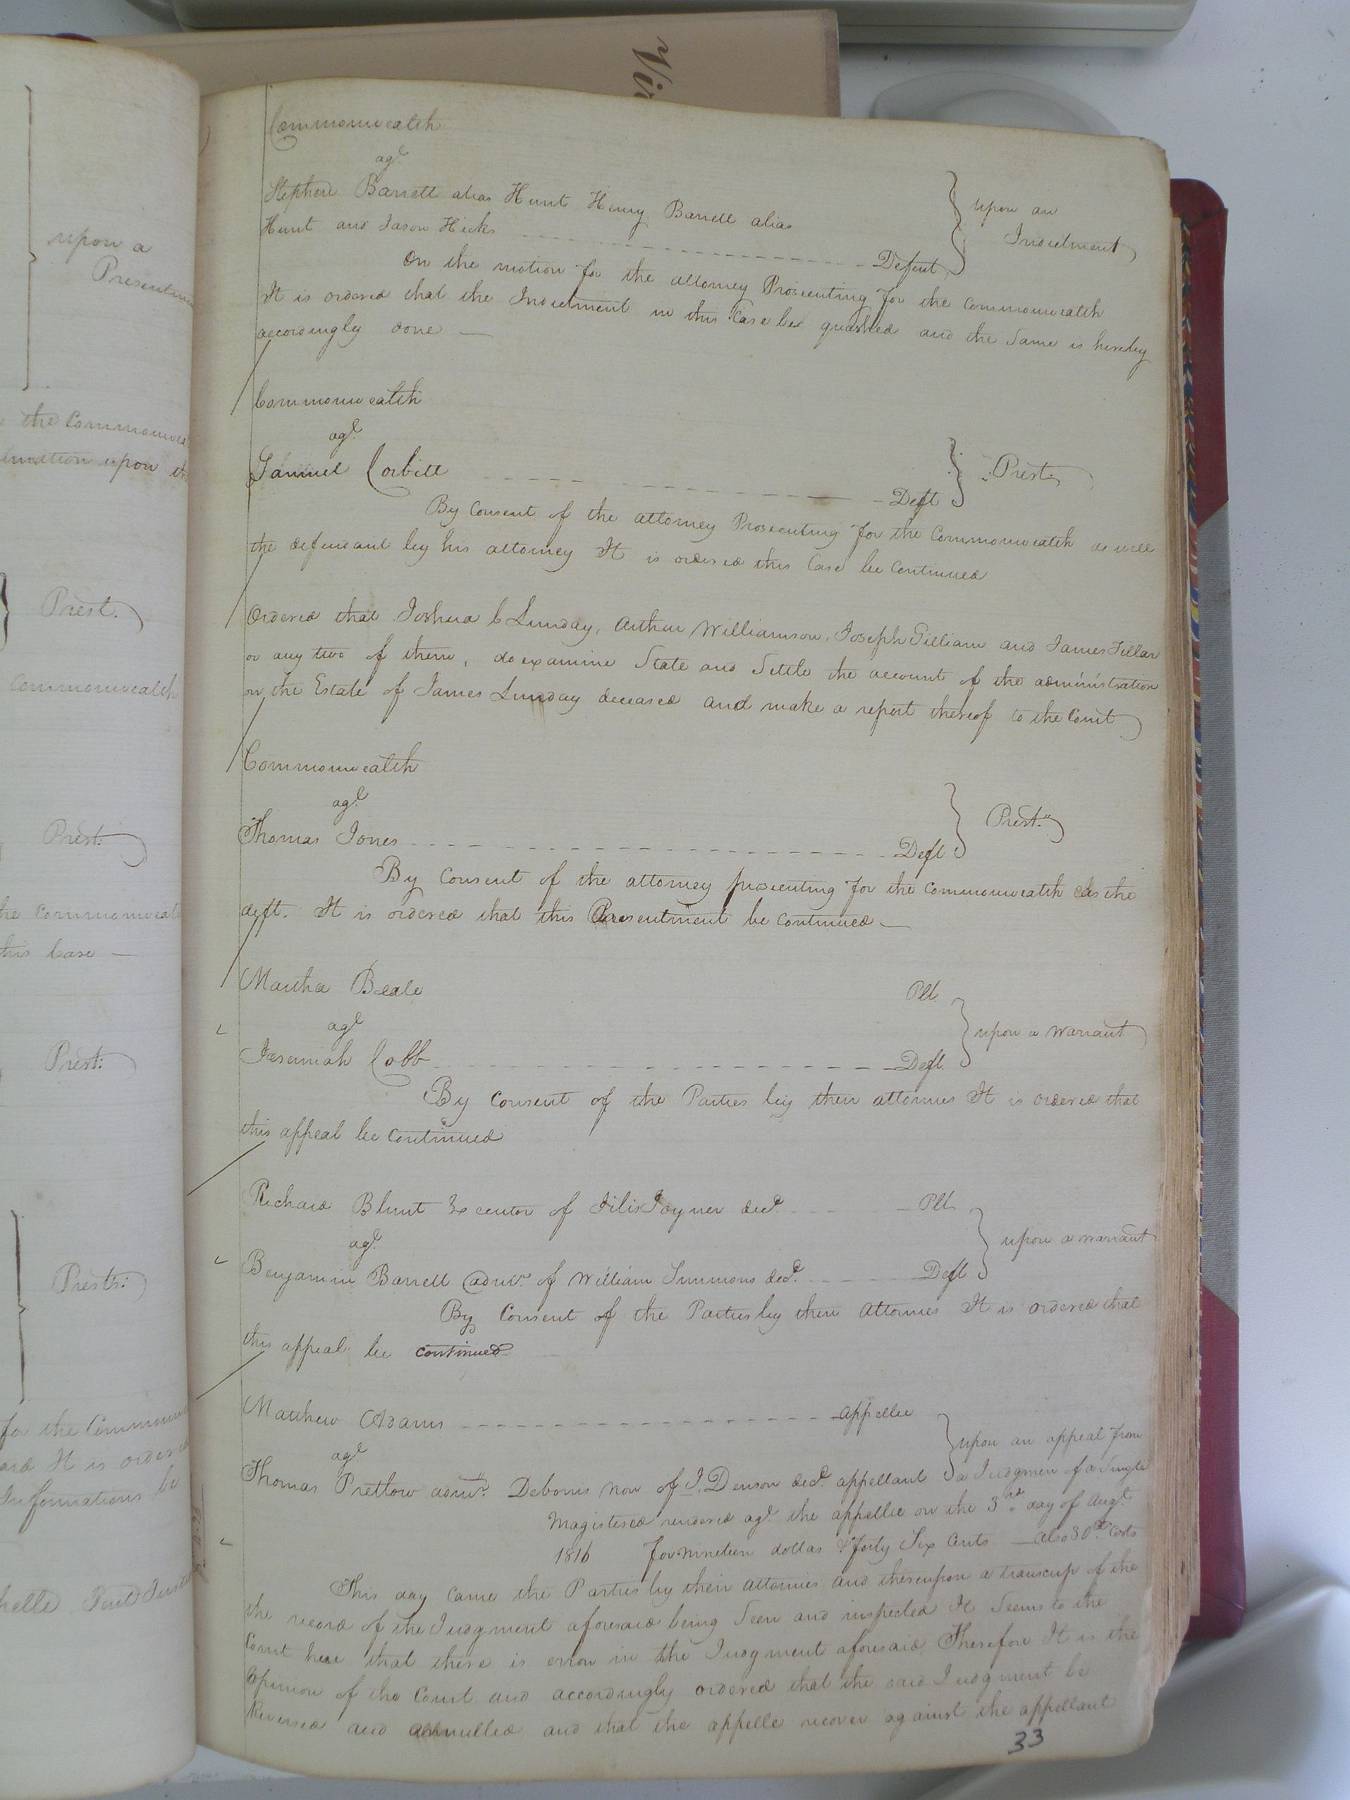 Vir
upon a
Presentm
the Commonwea
mation upon th
Prest.
Commonwealth
Prest:
the Commonwealt
this Case —
Prest:
Prests:
for the Common
and It is order
Informations be
Commonwealth
agt
Stephen Barrett alias Hunt Henry Barrett alias
Hunt and Jason Hicks Defent
upon an
Indictment
On the motion for the attorney Prosecuting for the Commonwealth
It is ordered that the Indictment in this Case be quashed and the Same is hereby
accordingly done —
Commonwealth
agt
Samuel Corbitt Deft
Prest.
By Consent of the attorney Prosecuting for the Commonwealth as well
the defendant by his attorney It is ordered this Case be Continued
Ordered that Joshua C Lunday, Arthur Williamson, Joseph Gilliam and James Fillar
or any two of them, do examine State and Settle the account of the administration
on the Estate of James Lunday deceased and make a report thereof to the Court
Commonwealth
agt
Thomas Jones Deft
Prest.
By Consent of the attorney prosecuting for the Commonwealth As the
deft. It is ordered that this Presentment be Continued —
Martha Beale Plt
agt
Jeremiah Cobb Deft
upon a Warrant
By Consent of the Parties by their attornies It is ordered that
this appeal be Continued
Richard Blunt Executor of Joyner decd. Plt
agt
Benjamin Barrett admr. of William Simmons decd. Deft
upon a warrant
By Consent of the Parties by their attornies It is ordered that
this appeal be continued
Matthew Adams appellee
agt
Thomas Pretlow admr. Debonis non of J. Denson decd. appellant
upon an appeal from
a Judgmen of a Single
Magistered rendered agt the appellee on the 3rd day of Augt.
1816 for nineteen dollas & forty Six Cents — also 30 Cts Costs
This day came the Parties by their attornies and thereupon a transcrip of the
the record of the Judgment aforesaid being Seen and inspected It Seems to the
Court here that there is error in the Judgment aforesaid Therefore It is the
Opinion of the Court and accordingly ordered that the said Judgment be
Reversed and annulled and that the appelle recover against the appellant
33